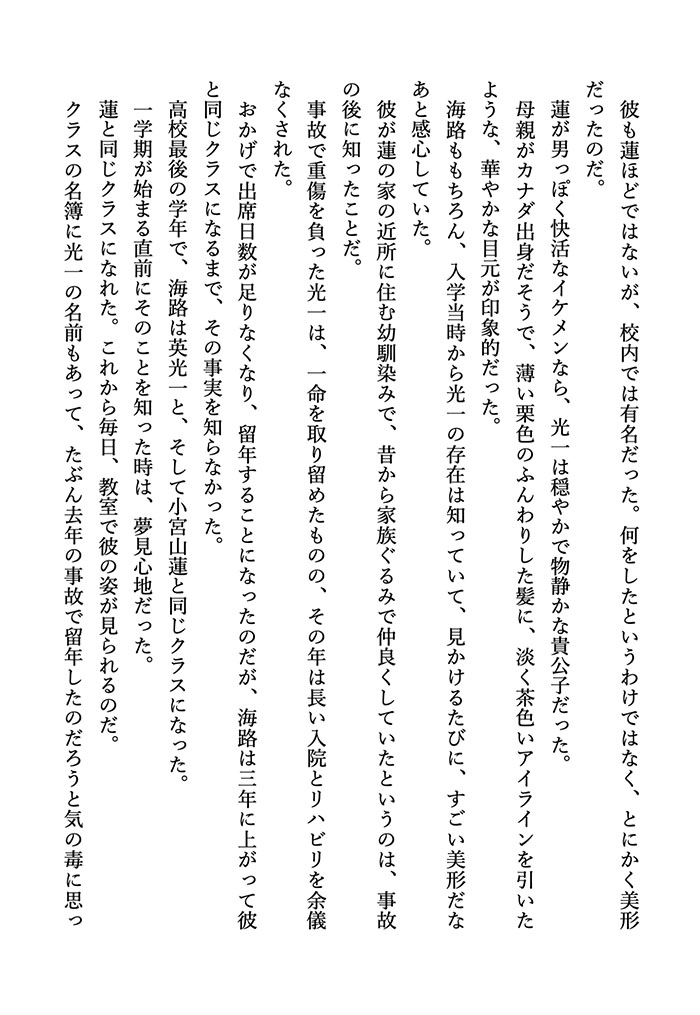 彼も蓮ほどではないが、校内では有名だった。何をしたというわけではなく、とにかく美形
だったのだ。
蓮が男っぽく快活なイケメンなら、光一は穏やかで物静かな貴公子だった。
母親がカナダ出身だそうで、薄い栗色のふんわりした髪に、淡く茶色いアイラインを引いた
ような、華やかな目元が印象的だった。
海路ももちろん、入学当時から光一の存在は知っていて、見かけるたびに、すごい美形だな
あと感心していた。
彼が蓮の家の近所に住む幼馴染みで、昔から家族ぐるみで仲良くしていたというのは、事故
の後に知ったことだ。
事故で重傷を負った光一は、一命を取り留めたものの、その年は長い入院とリハビリを余儀
なくされた。
おかげで出席日数が足りなくなり、留年することになったのだが、海路は三年に上がって彼
と同じクラスになるまで、その事実を知らなかった。
高校最後の学年で、海路は英光一と、そして小宮山蓮と同じクラスになった。
一学期が始まる直前にそのことを知った時は、夢見心地だった。
蓮と同じクラスになれた。これから毎日、教室で彼の姿が見られるのだ。
クラスの名簿に光一の名前もあって、たぶん去年の事故で留年したのだろうと気の毒に思っ